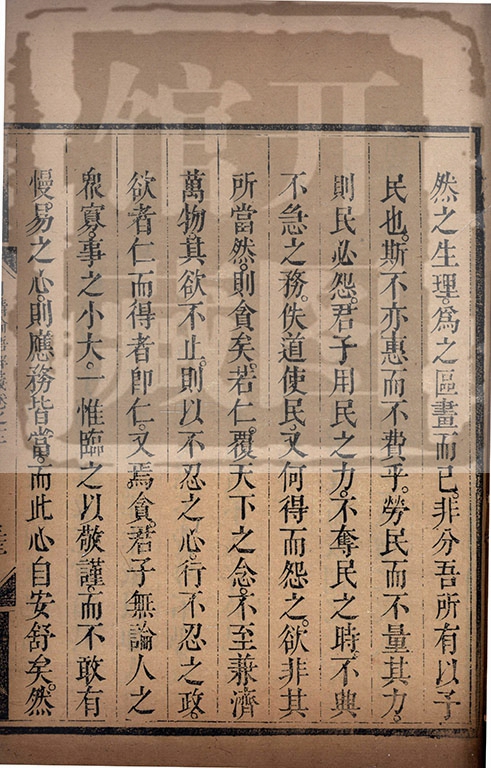 然之生理。為之區畫而已。非分吾所有以予
民也。斯不亦惠而不費乎。勞民而不量其力。
則民必怨。君子用民之力。不奪民之時。不興
不急之務。佚道使民。又何得而怨之。欲非其
所當然。則貪矣。若仁。覆天下之念。不至兼濟
萬物。其欲不止。則以不忍之心。行不忍之政。
欲者仁而得者即仁。又焉貪。君子無論人之
衆寡。事之小大。一惟臨之以敬謹。而不敢有
慢易之心。則應務皆當。而此心自安舒矣。然